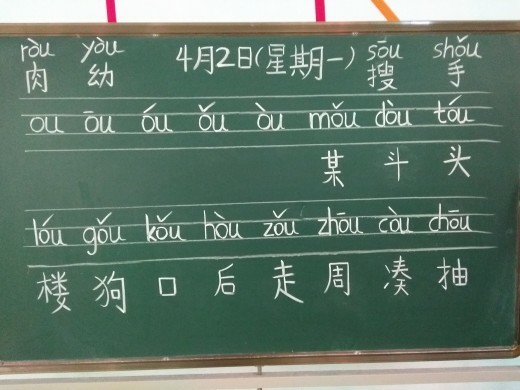 ròu yòu sōu shǒu
肉 幼 4月2日(星期一) 搜 手
ou ōu óu ǒu òu mǒu dòu tóu
某 斗 头
lóu gǒu kǒu hòu zǒu zhōu còu chōu
楼 狗 口 后 走 周 凑 抽